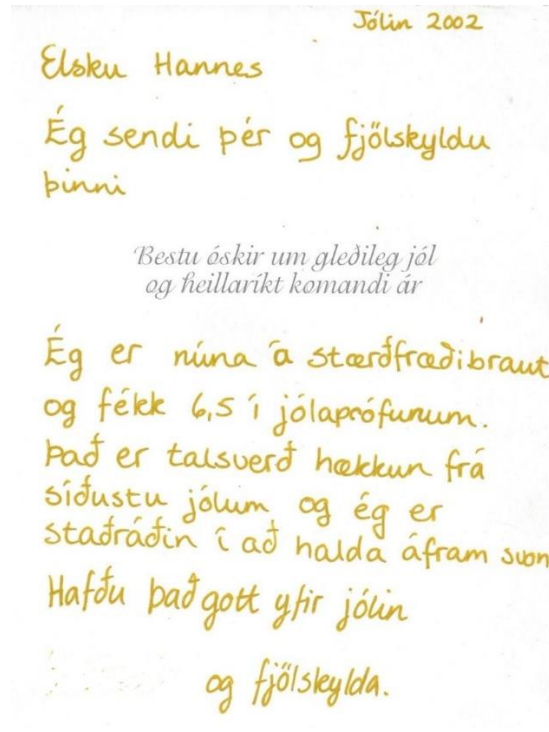 Jólin 2002
Elsku Hannes
Ég sendi þér og fjölskyldu
þinni
Bestu óskir um gleðileg jól
og heillaríkt komandi ár
Ég er núna á stærðfræðibraut
og fékk 6,5 í jólaprófunum.
Það er talsverð hækkun frá
síðustu jólum og ég er
staðráðin í að halda áfram svon
Hafðu það gott yfir jólin
og fjölskylda.